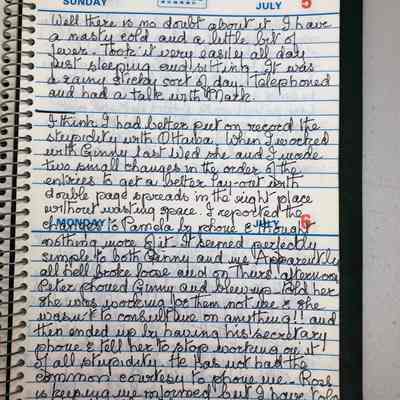 SUNDAY JULY 5
Well there is no doubt about it. I have
a nasty cold and a little bit of
fever. Took it very easily all day
just sleeping and sitting. It was
a rainy sticky sort of day. Telephoned
and had a talk with Mark.
I think I had better put on record the
stupidity with Ottawa. When I worked
with Ginny last Wed she and I made
two small changes in the order of the
entries to get a better lay-out with
double page spreads in the right place
without wasting space. I reported the
MONDAY JULY 6
changes to Pamela by phone & thought
nothing more of it. It seemed perfectly
simple to both Ginny and me. Apparently
all hell broke loose and on Thurs. afternoon
Peter phoned Ginny and blew up, told her
she was working for them not me & she
wasn't to consult me on anything!! and
then ended up by having his secretary
phone & tell her to stop working on it
of all stupidity. He has not had the
common courtesy to phone me. Ross
is keeping me informed but I have told